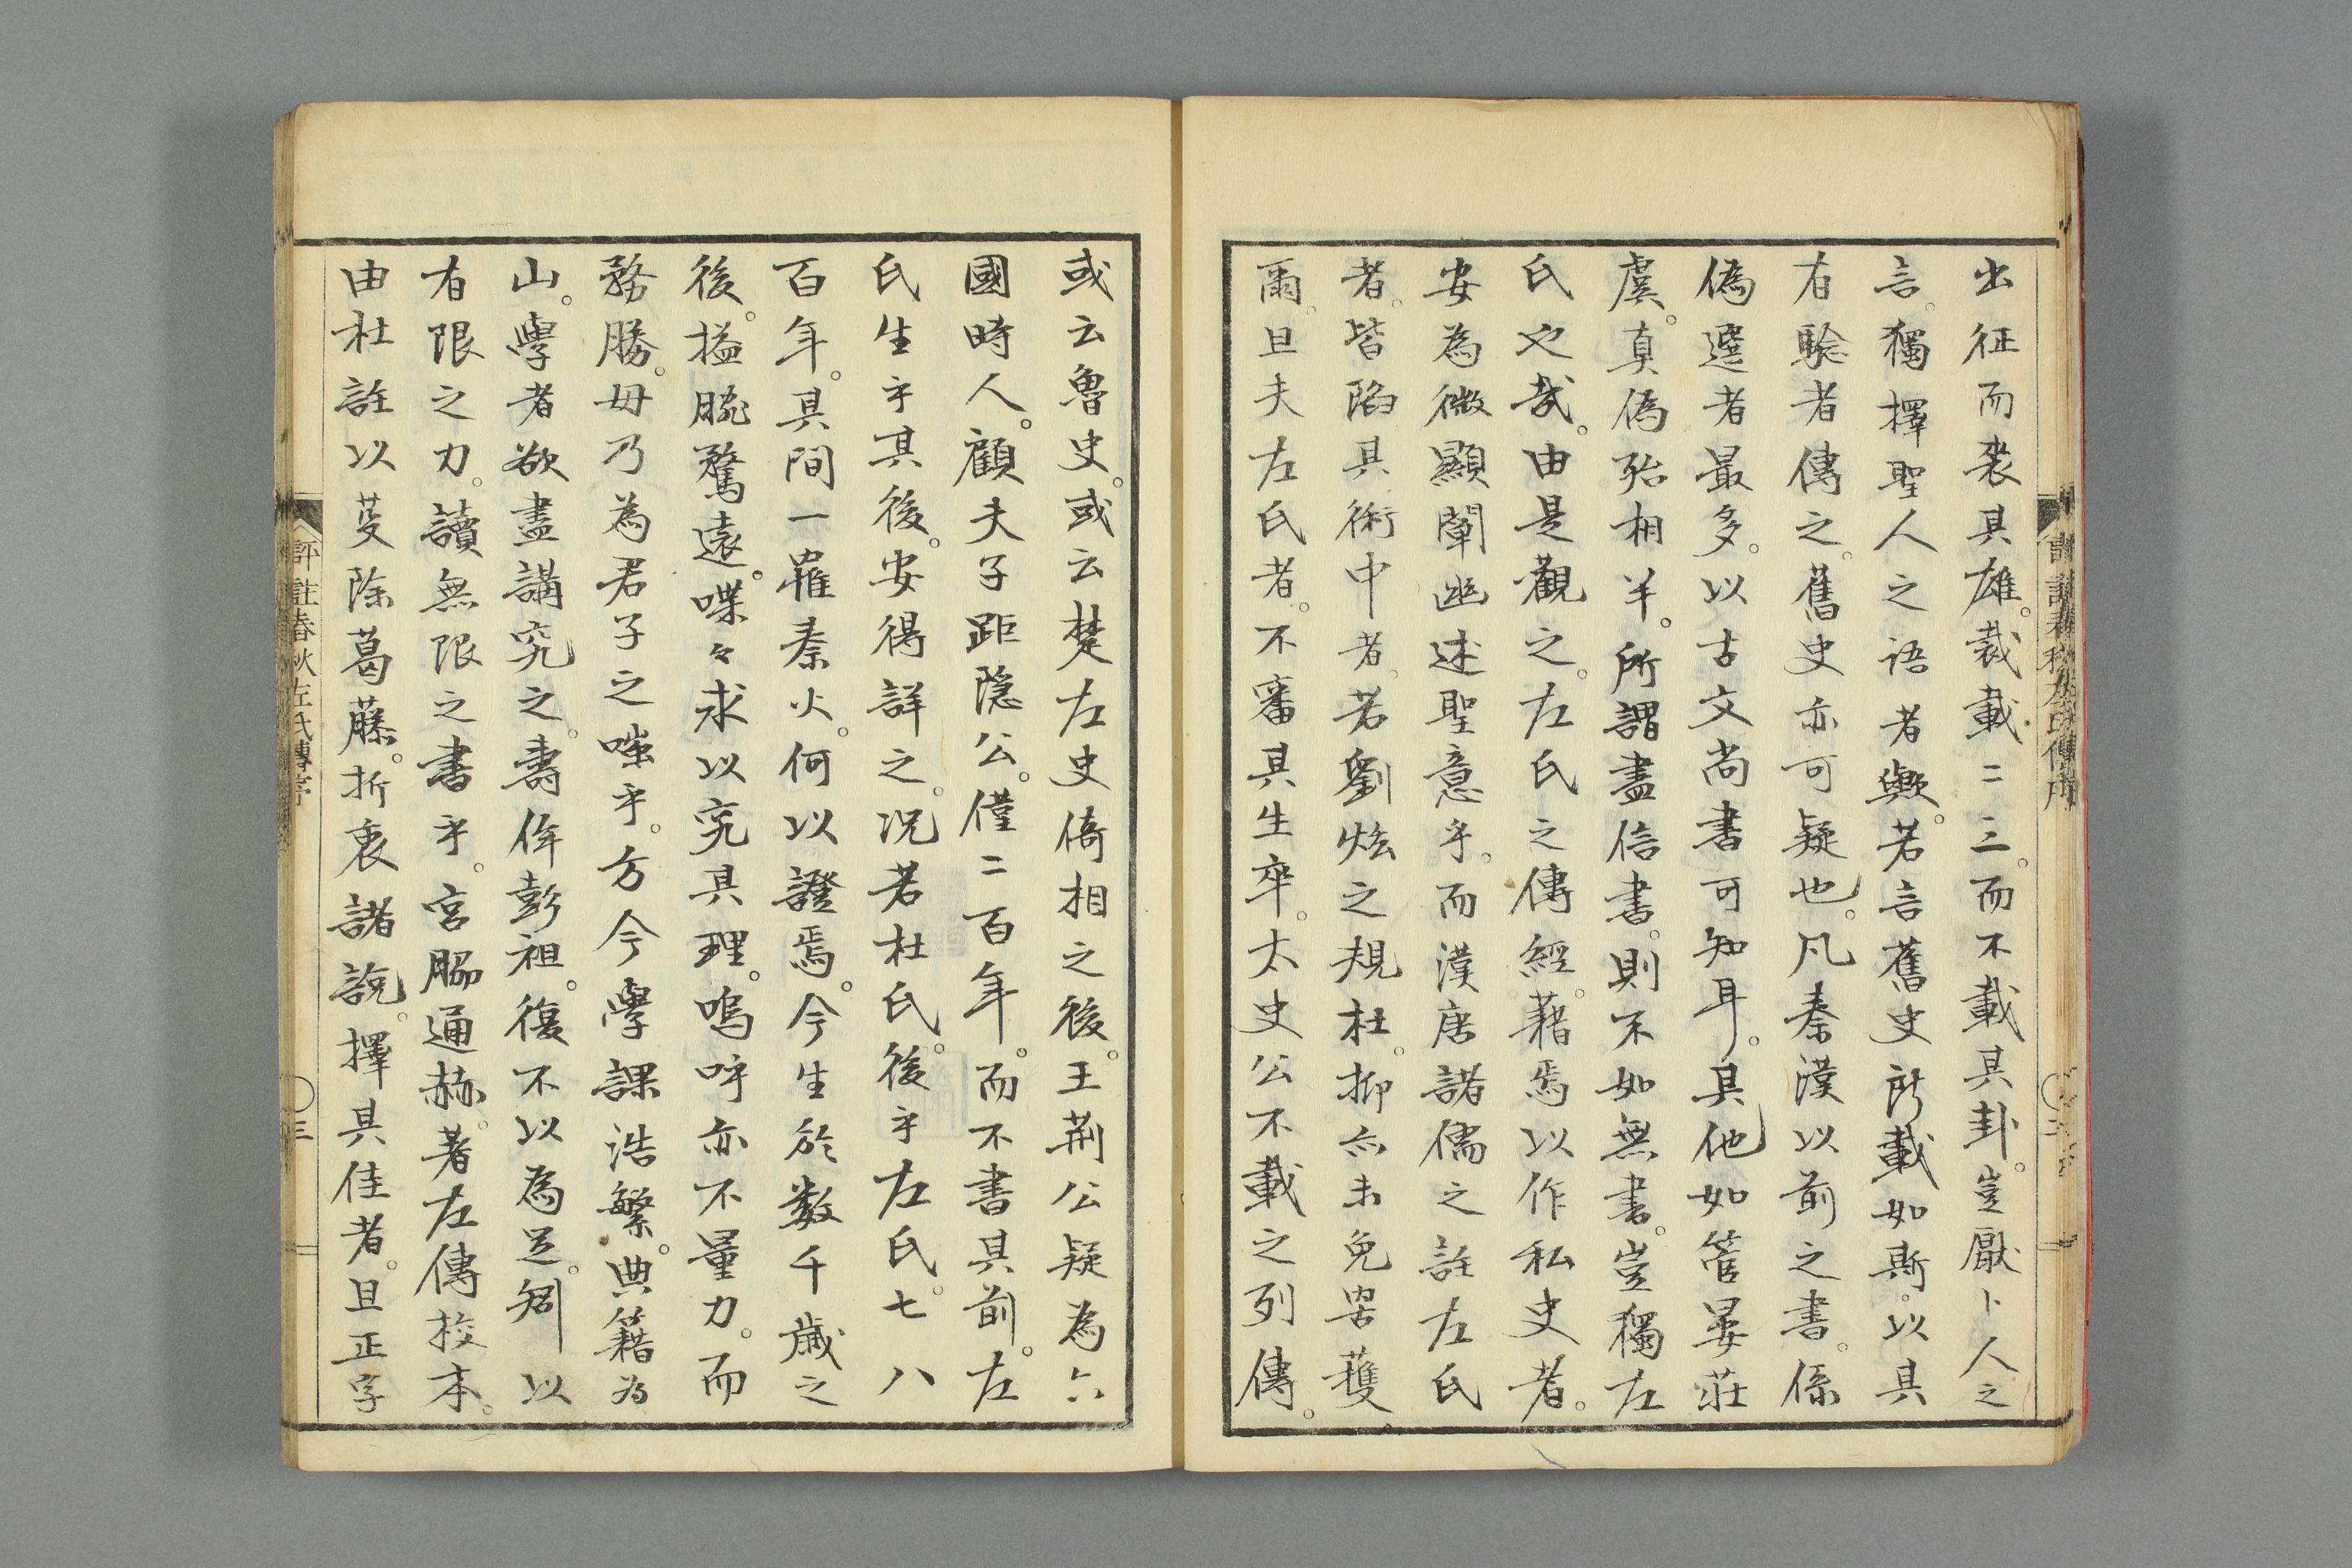 出征而喪其雄。裁載二三。而不載其卦。豈厭卜人之
言。獨擇聖人之語者歟。若言舊史所載如斯。以其
有驗者傳之。舊史亦可疑也。凡秦漢以前之書。係
偽選者最多。以古文尚書可知耳。其他如管晏莊
虞。真偽殆相半。所謂盡信書。則不如無書。豈獨左
氏也哉。由是觀之。左氏之傳經。藉焉以作私史者。
安為微顯闡幽述聖意乎。而漢唐諸儒之註左氏
者。皆陷其術中者。若劉炫之規杜。抑亦未免罟擭
爾。且夫左氏者。不審其生卒。太史公不載之列傳。
或云魯史。或云楚左史倚相之後。王荆公疑為六
國時人。顧夫子距隱公。僅二百年。而不書其前。左
氏生乎其後。安得詳之。況若杜氏。後乎左氏。七八
百年。其間一罹秦火。何以證焉。今生於數千歲之
後。搤腕騖遠。喋々求以究其理。嗚呼亦不量力。而
務勝。毋乃為君子之嗤乎。方今學課浩繁。典籍為
山。學者欲盡講究之。壽侔彭祖。復不以為足。矧以
有限之力。讀無限之書乎。宮脇通赫。著左傳校本。
由杜註以芟除葛藤。折衷諸說。擇其佳者。且正字
評註春秋左氏傳序
三